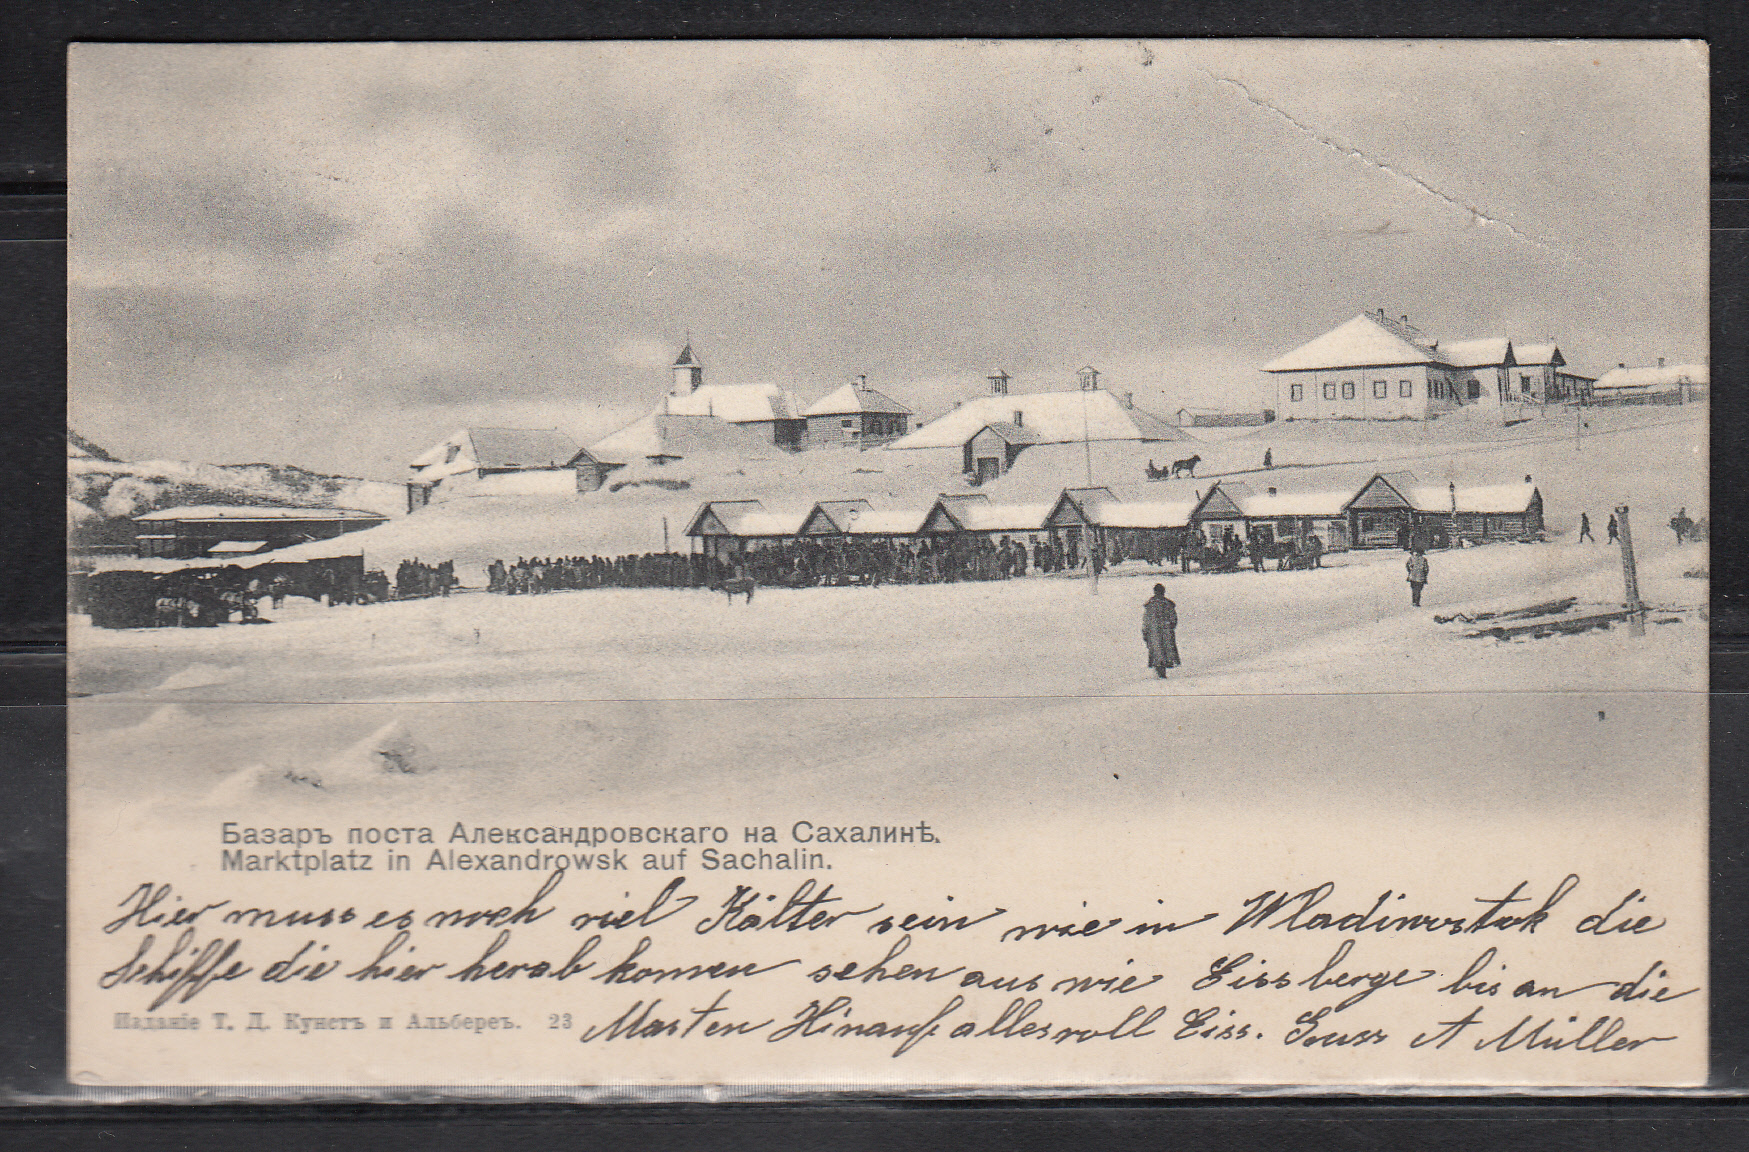 Базаръ поста Александровскаго на Сахалинѣ.
Marktplatz in Alexandrowsk auf Sachalin.
Hier muss es noch viel Kälter sein wie in Wladiwostok die
Schiffe die hier herab kommen sehen aus wie Eissberge bis an die
Masten Hinauf alles voll Eiss. Gruss A Müller
Изданіе Т. Д. Кунстъ и Альберсъ. 23